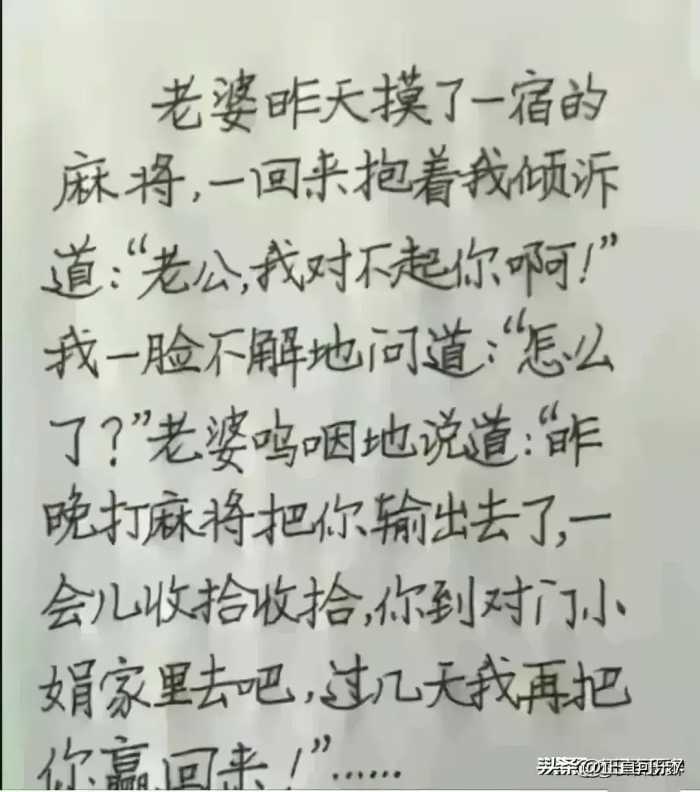 老婆昨天摸了一宿的
麻将,一回来抱着我倾诉
道:“老公,我对不起你啊!”
我一脸不解地问道:“怎么
了?”老婆呜咽地说道:“昨
晚打麻将把你输出去了,一
会儿收拾收拾,你到对门小
娟家里去吧,过几天我再把
你赢回来!”……
头条@